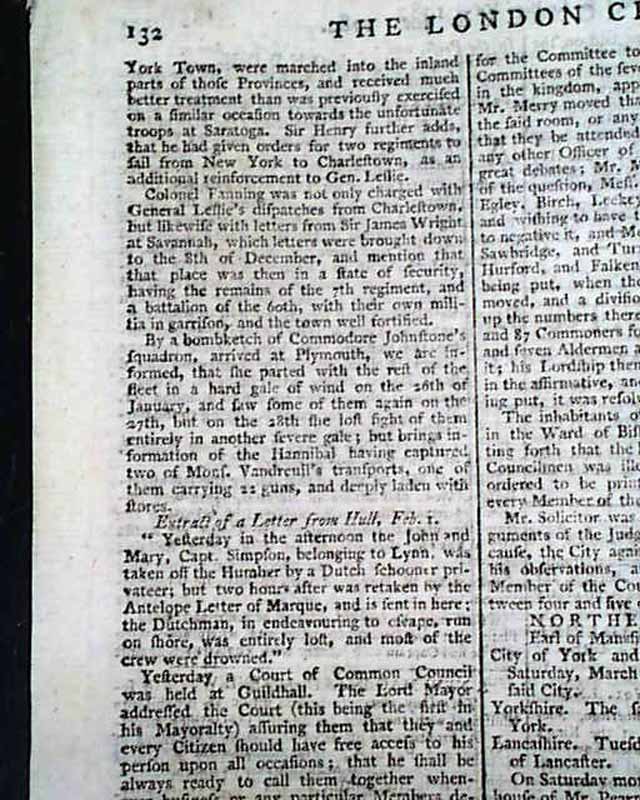 132
THE LONDON C
York Town, were marched into the inland
parts of thoſe Provinces, and received much
better treatment than was previouſly exerciſed
on a ſimilar occaſion towards the unfortunate
troops at Saratoga. Sir Henry further adds,
that he had given orders for two regiments to
ſail from New York to Charleſtown, as an
additional reinforcement to Gen. Leſlie.
Colonel Fanning was not only charged with
General Leſlie's diſpatches from Charleſtown,
but likewiſe with letters from Sir James Wright
at Savannah, which letters were brought down
to the 8th of December, and mention that
that place was then in a ſtate of ſecurity,
having the remains of the 7th regiment, and
a battalion of the 60th, with their own mili-
tia in garriſon, and the town well fortified.
By a bombketch of Commodore Johnſtone's
ſquadron, arrived at Plymouth, we are in-
formed, that ſhe parted with the reſt of the
fleet in a hard gale of wind on the 26th of
January, and ſaw ſome of them again on the
27th, but on the 28th ſhe loſt ſight of them
entirely in another ſevere gale; but brings in-
formation of the Hannibal having captured
two of Monſ. Vandreuil's tranſports, one of
them carrying 22 guns, and deeply laden with
ſtores.
Extract of a Letter from Hull, Feb. 1.
" Yeſterday in the afternoon the John and
Mary, Capt. Simpſon, belonging to Lynn, was
taken off the Humber by a Dutch ſchooner pri-
vateer; but two hours after was retaken by the
Antelope Letter of Marque, and is ſent in here;
the Dutchman, in endeavouring to eſcape, run
on ſhore, was entirely loſt, and moſt of the
crew were drowned."
Yeſterday a Court of Common Council
was held at Guildhall. The Lord Mayor
addreſſed the Court (this being the firſt in
his Mayoralty) aſſuring them that they and
every Citizen ſhould have free acceſs to his
perſon upon all occaſions; that he ſhall be
always ready to call them together when-
buſineſs or any particular Members de-
for the Committee to
Committees of the ſeve
in the kingdom, app
Mr. Merry moved th
the ſaid room, or any
that they be attende
any other Officer of
great debates; Mr.
of the queſtion, Meſſ.
Egley, Birch, Leeky
and wiſhing to have
to negative it, and M
Sawbridge, and Turn
Hurford, and Falken
being put, when the
moved, and a diviſio
up the numbers there
and 87 Commoners fo
and ſeven Aldermen
it; his Lordſhip then
in the affirmative, an
ing put, it was reſolv
The inhabitants o
in the Ward of Biſ
ting forth that the
Councilmen was ill
ordered to be print
every Member of th
Mr. Solicitor was
guments of the Judg
cauſe, the City again
his obſervations, a
Member of the Cou
tween four and five
NORTHE
Earl of Mansf
City of York and
Saturday, March
ſaid City.
Yorkſhire. The ſa
York.
Lancaſhire. Tueſd
of Lancaſter.
On Saturday mo
houſe of Mr. Pear